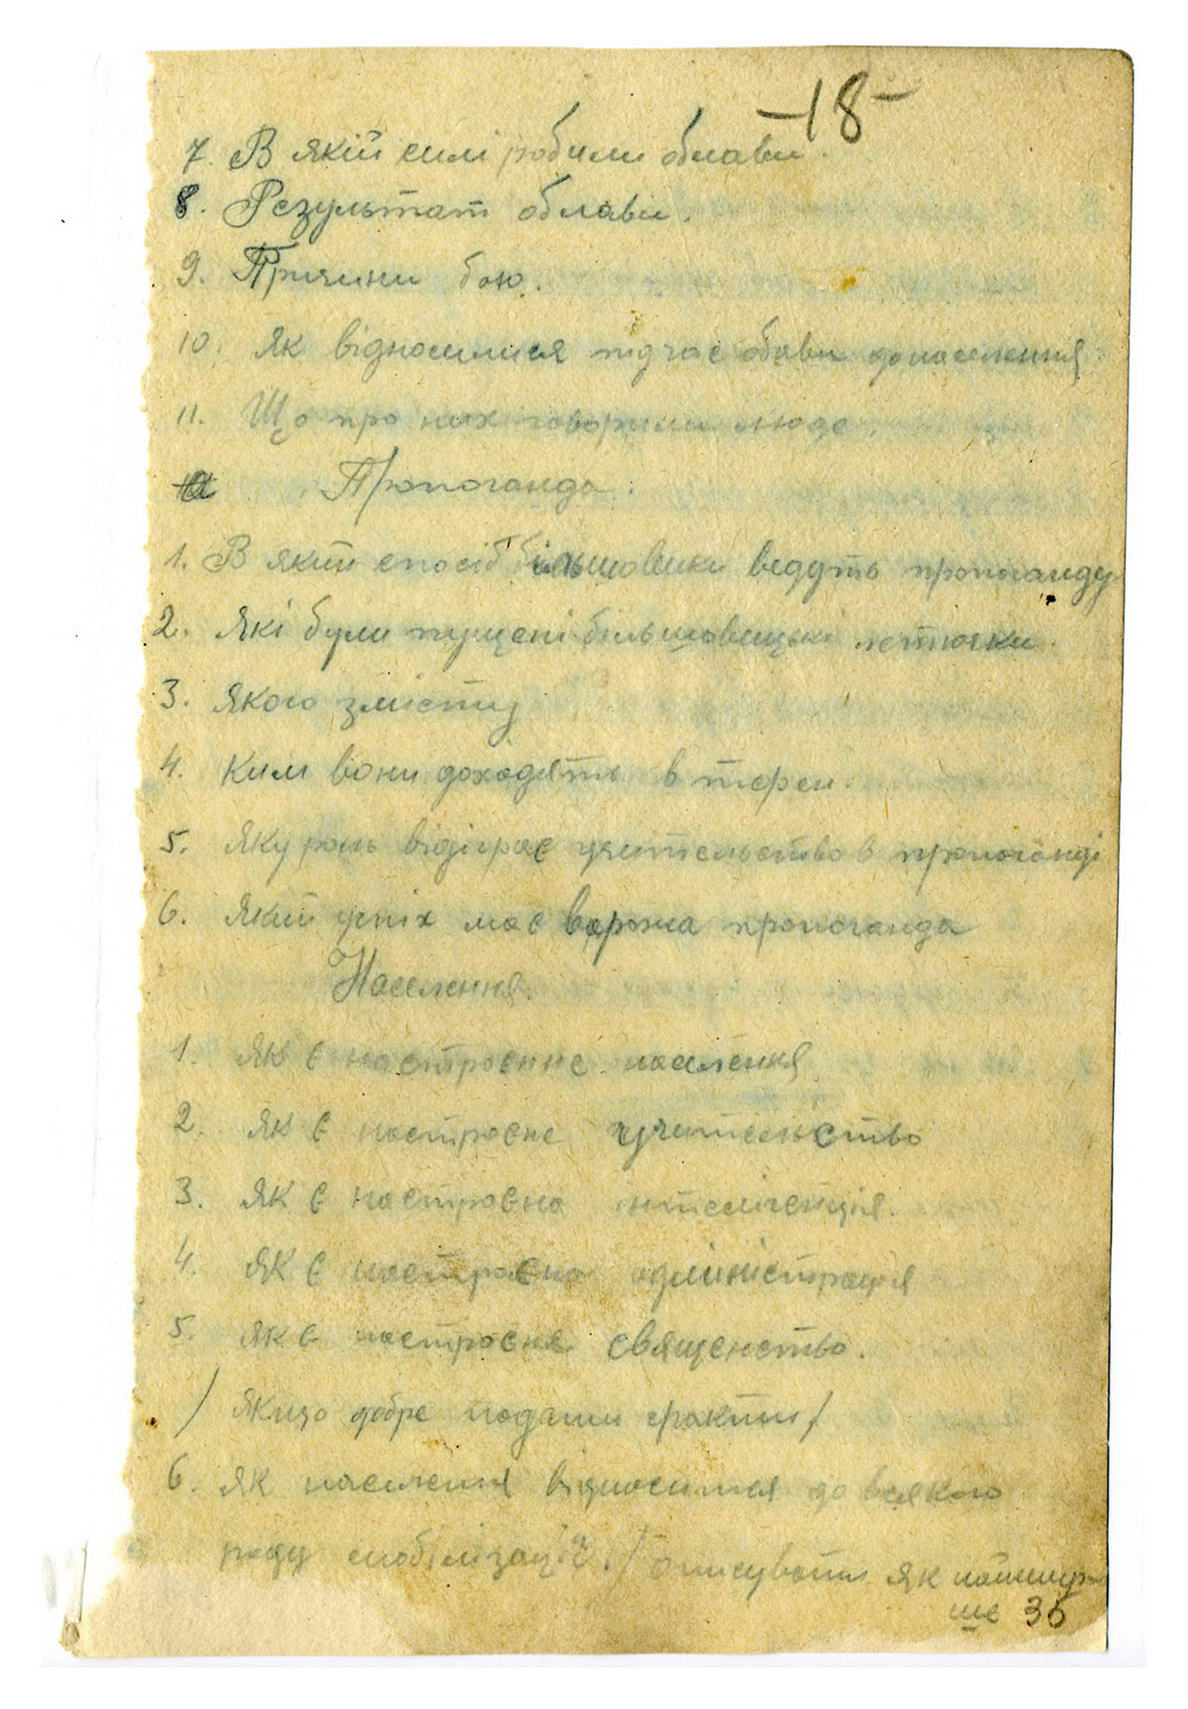 -18-
7. В якій силі робили облави.
8. Результат облави.
9. Причини бою.
10. Як відносилися підчас обави до населення
11. Що про них говорили люде.
Пропоганда.
1. В який спосіб більшовики ведуть пропоганду
2. Які були пущені більшовицькі летючки.
3. Якого змісту
4. Ким вони доходять в терен.
5. Яку роль відіграє учительство в пропоганді
6. Який успіх має ворожа пропоганда
Населення.
1. Як є настроєнне населення
2. Як є настроєне учительство
3. Як є настроєна інтелігенція.
4. Як є настроєна адміністрація
5. Як є настроєне священство.
/ Якщо добре подати факти /
6. Як населення відноситься до всякого
роду мобілізації. / описувати як найшир-
ше 35